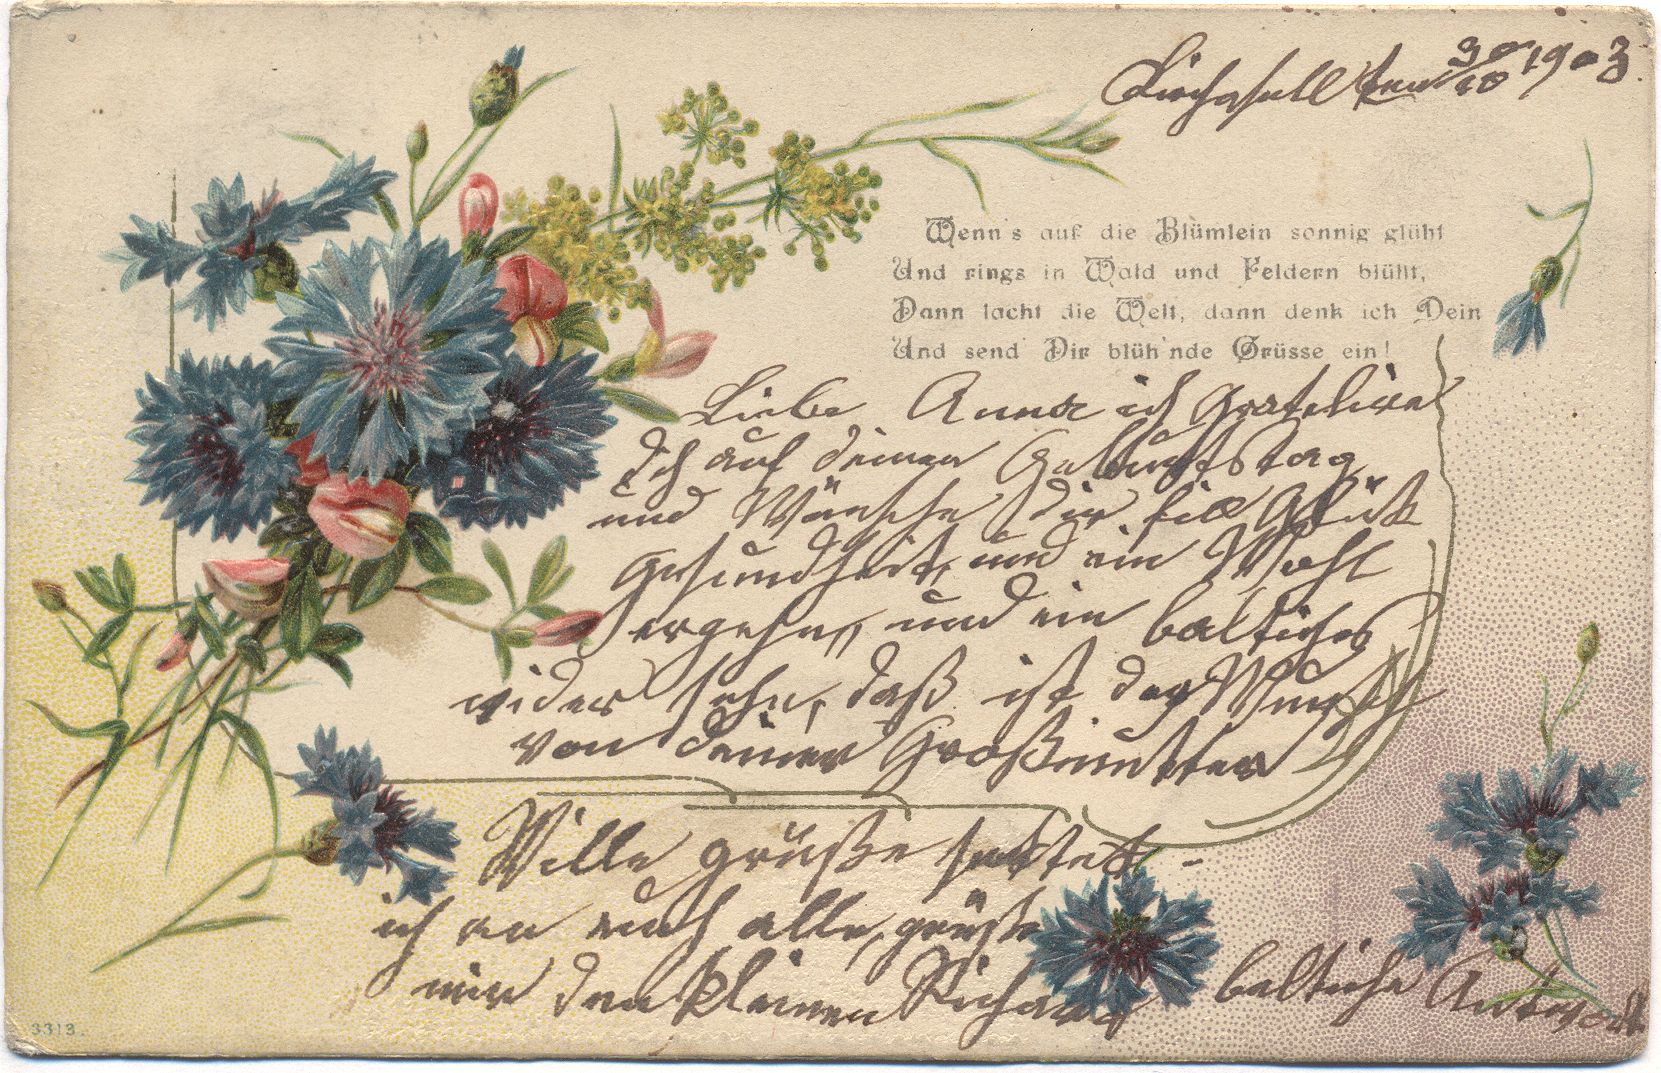 Kirchhasell den 30/10 1903.
Wenn's auf die Blümlein sonnig glüht
Und rings in Wald und Feldern blüht,
Dann lacht die Welt, dann denk ich Dein
Und send' Dir blüh'nde Grüsse ein!
Liebe Anna ich Gratulire
dich auf deinen Geburtstag
und Wünsche dir fill Glück
gesundheit, und ein Wohl
ergehn, und ein baltiches
wider sehn, daß ist der Wunsch
von deiner Großmutter
Ville grüße
ich an euch alle, grüßt
mir den kleinen Richard
baltiche Antwort
3313.